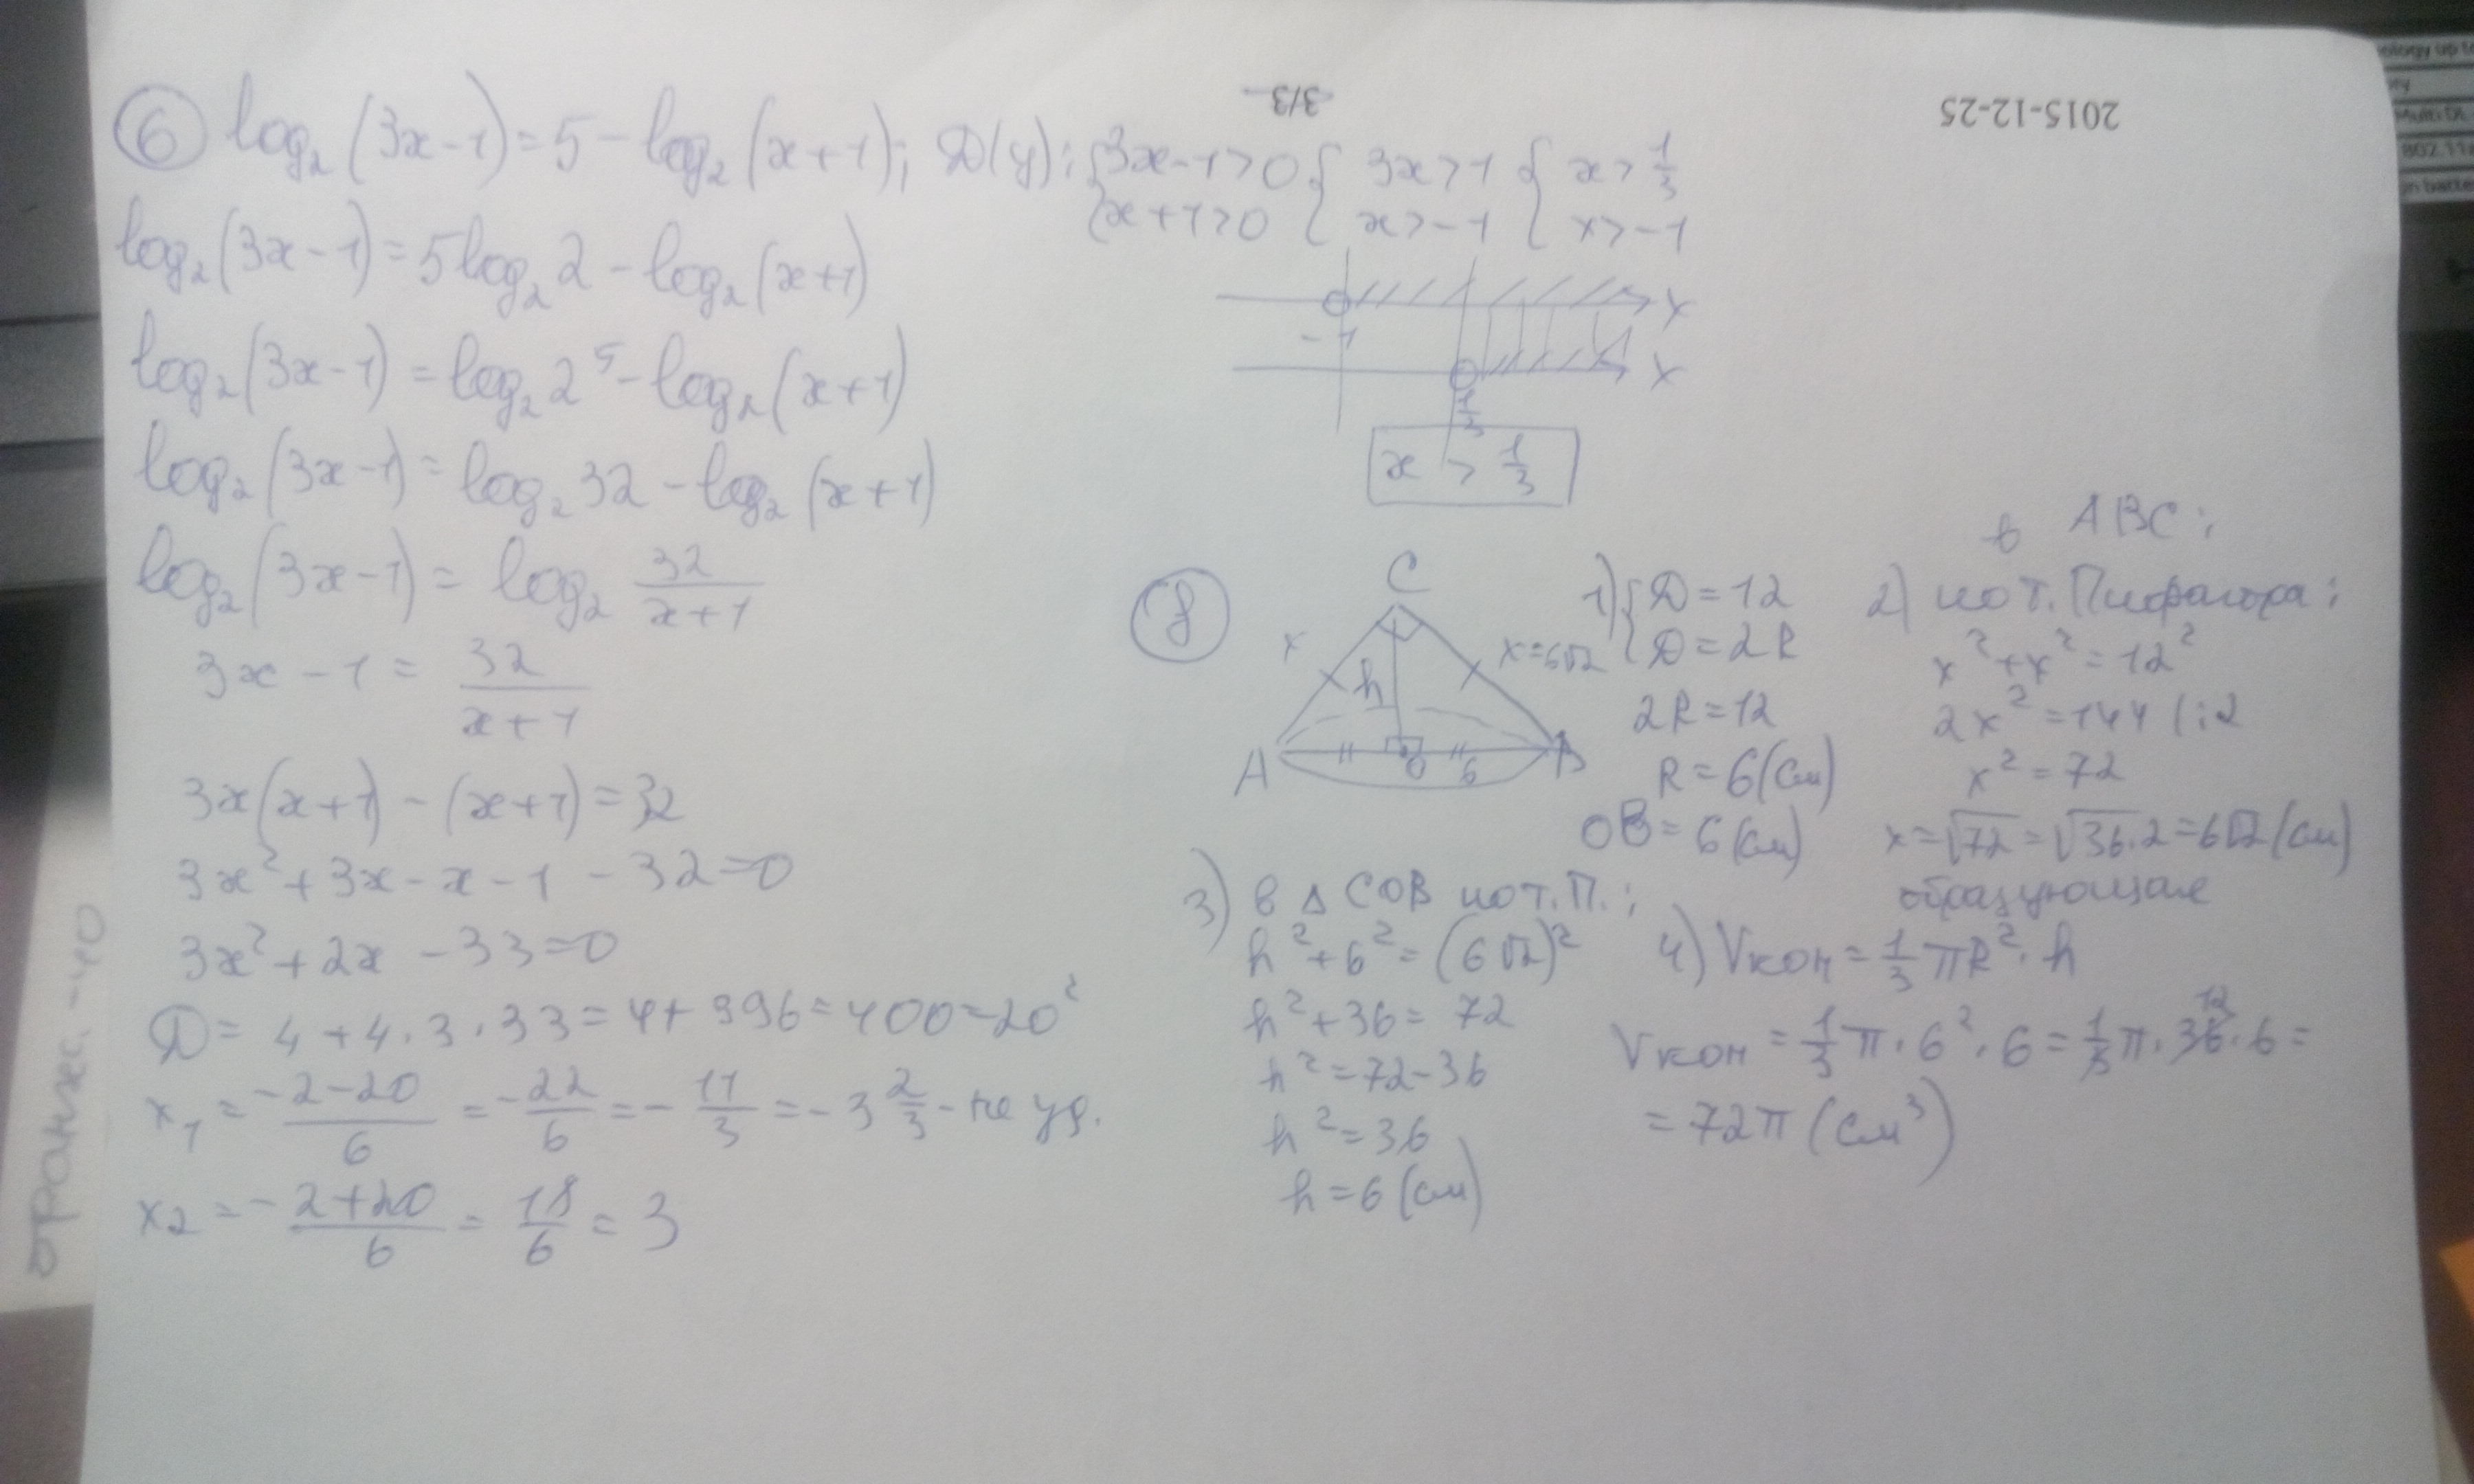 3/3
2015-12-25
⑥ log₂(3x-1)=5-log₂(x+1); D(y): {3x-1>0 {3x>1 {x>1/3
{x+1>0 {x>-1 {x>-1
log₂(3x-1)=5log₂2-log₂(x+1)
log₂(3x-1)=log₂2⁵-log₂(x+1)
log₂(3x-1)=log₂32-log₂(x+1)
log₂(3x-1)=log₂ 32/(x+1)
3x-1=32/(x+1)
3x(x+1)-(x+1)=32
3x²+3x-x-1-32=0
3x²+2x-33=0
D=4+4·3·33=4+396=400=20²
x₁=(-2-20)/6=-22/6=-11/3=-3 2/3-не уд.
x₂=(-2+20)/6=18/6=3
-1
x
1/3
x
x > 1/3
⑧
C
x
h
x=6√2
A
O
6
B
1) {D=12
{D=2R
2R=12
R=6(см)
OB=6(см)
в ABC:
2) по т. Пифагора:
x²+x²=12²
2x²=144 |:2
x²=72
x=√72=√36·2=6√2(см)
образующая
3) в Δ COB по т. П.:
h²+6²=(6√2)²
h²+36=72
h²=72-36
h²=36
h=6(см)
4) Vкон=1/3πR²·h
12
Vкон=1/3π·6²·6=1/3π·36·6=
=72π(см³)
оранж. -40
ology up to
Multi DL
802.11a